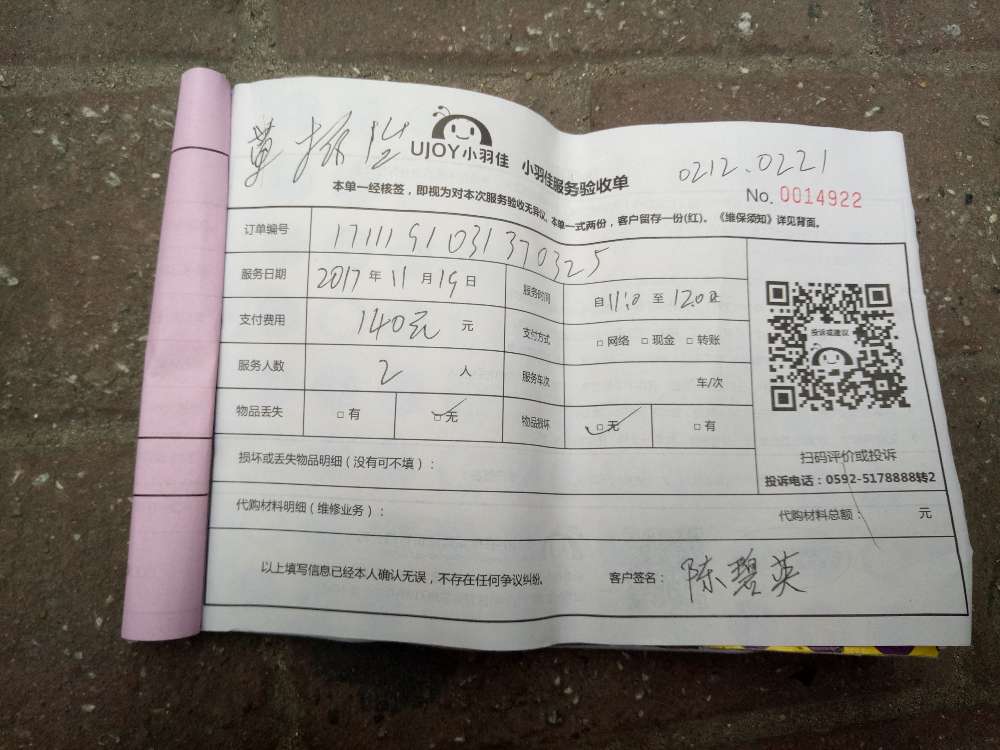 黄
UJOY小羽佳 小羽佳服务验收单 0212.0221
本单一经核签，即视为对本次服务验收无异议。本单一式两份，客户留存一份(红)。《维保须知》详见背面。 No. 0014922
订单编号 171119103137 0325
服务日期 2017年11月19日 服务时间 自11:0至12:00止
支付费用 140元 元 支付方式 □网络 □现金 □转账
投诉或建议
服务人数 2 人 服务车次 车/次
物品丢失 □有 □无 物品损坏 □无 □有
扫码评价或投诉
损坏或丢失物品明细（没有可不填）：
投诉电话：0592-5178888转2
代购材料明细（维修业务）： 代购材料总额： 元
以上填写信息已经本人确认无误，不存在任何争议纠纷。 客户签名： 陈碧英